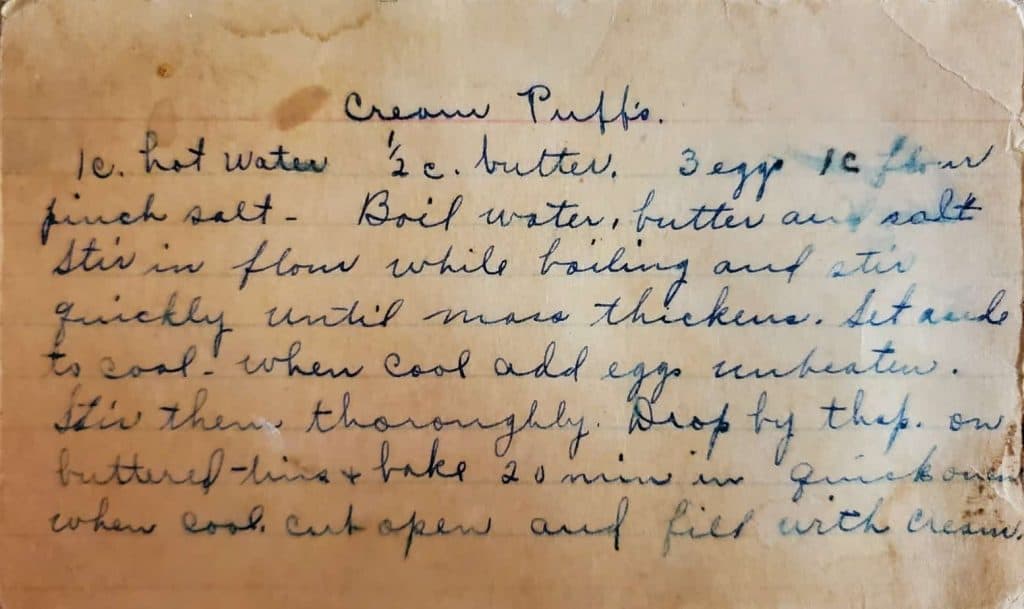 Cream Puff's.
1c. hot water ½ c. butter. 3 eggs 1c flour
pinch salt - Boil water, butter and salt
Stir in flour while boiling and stir
quickly until mass thickens. Set aside
to cool - when cool add eggs unbeaten.
Stir them thoroughly. Drop by tbsp. on
buttered-tins + bake 20 min in quick oven
when cool. cut open and fill with cream.